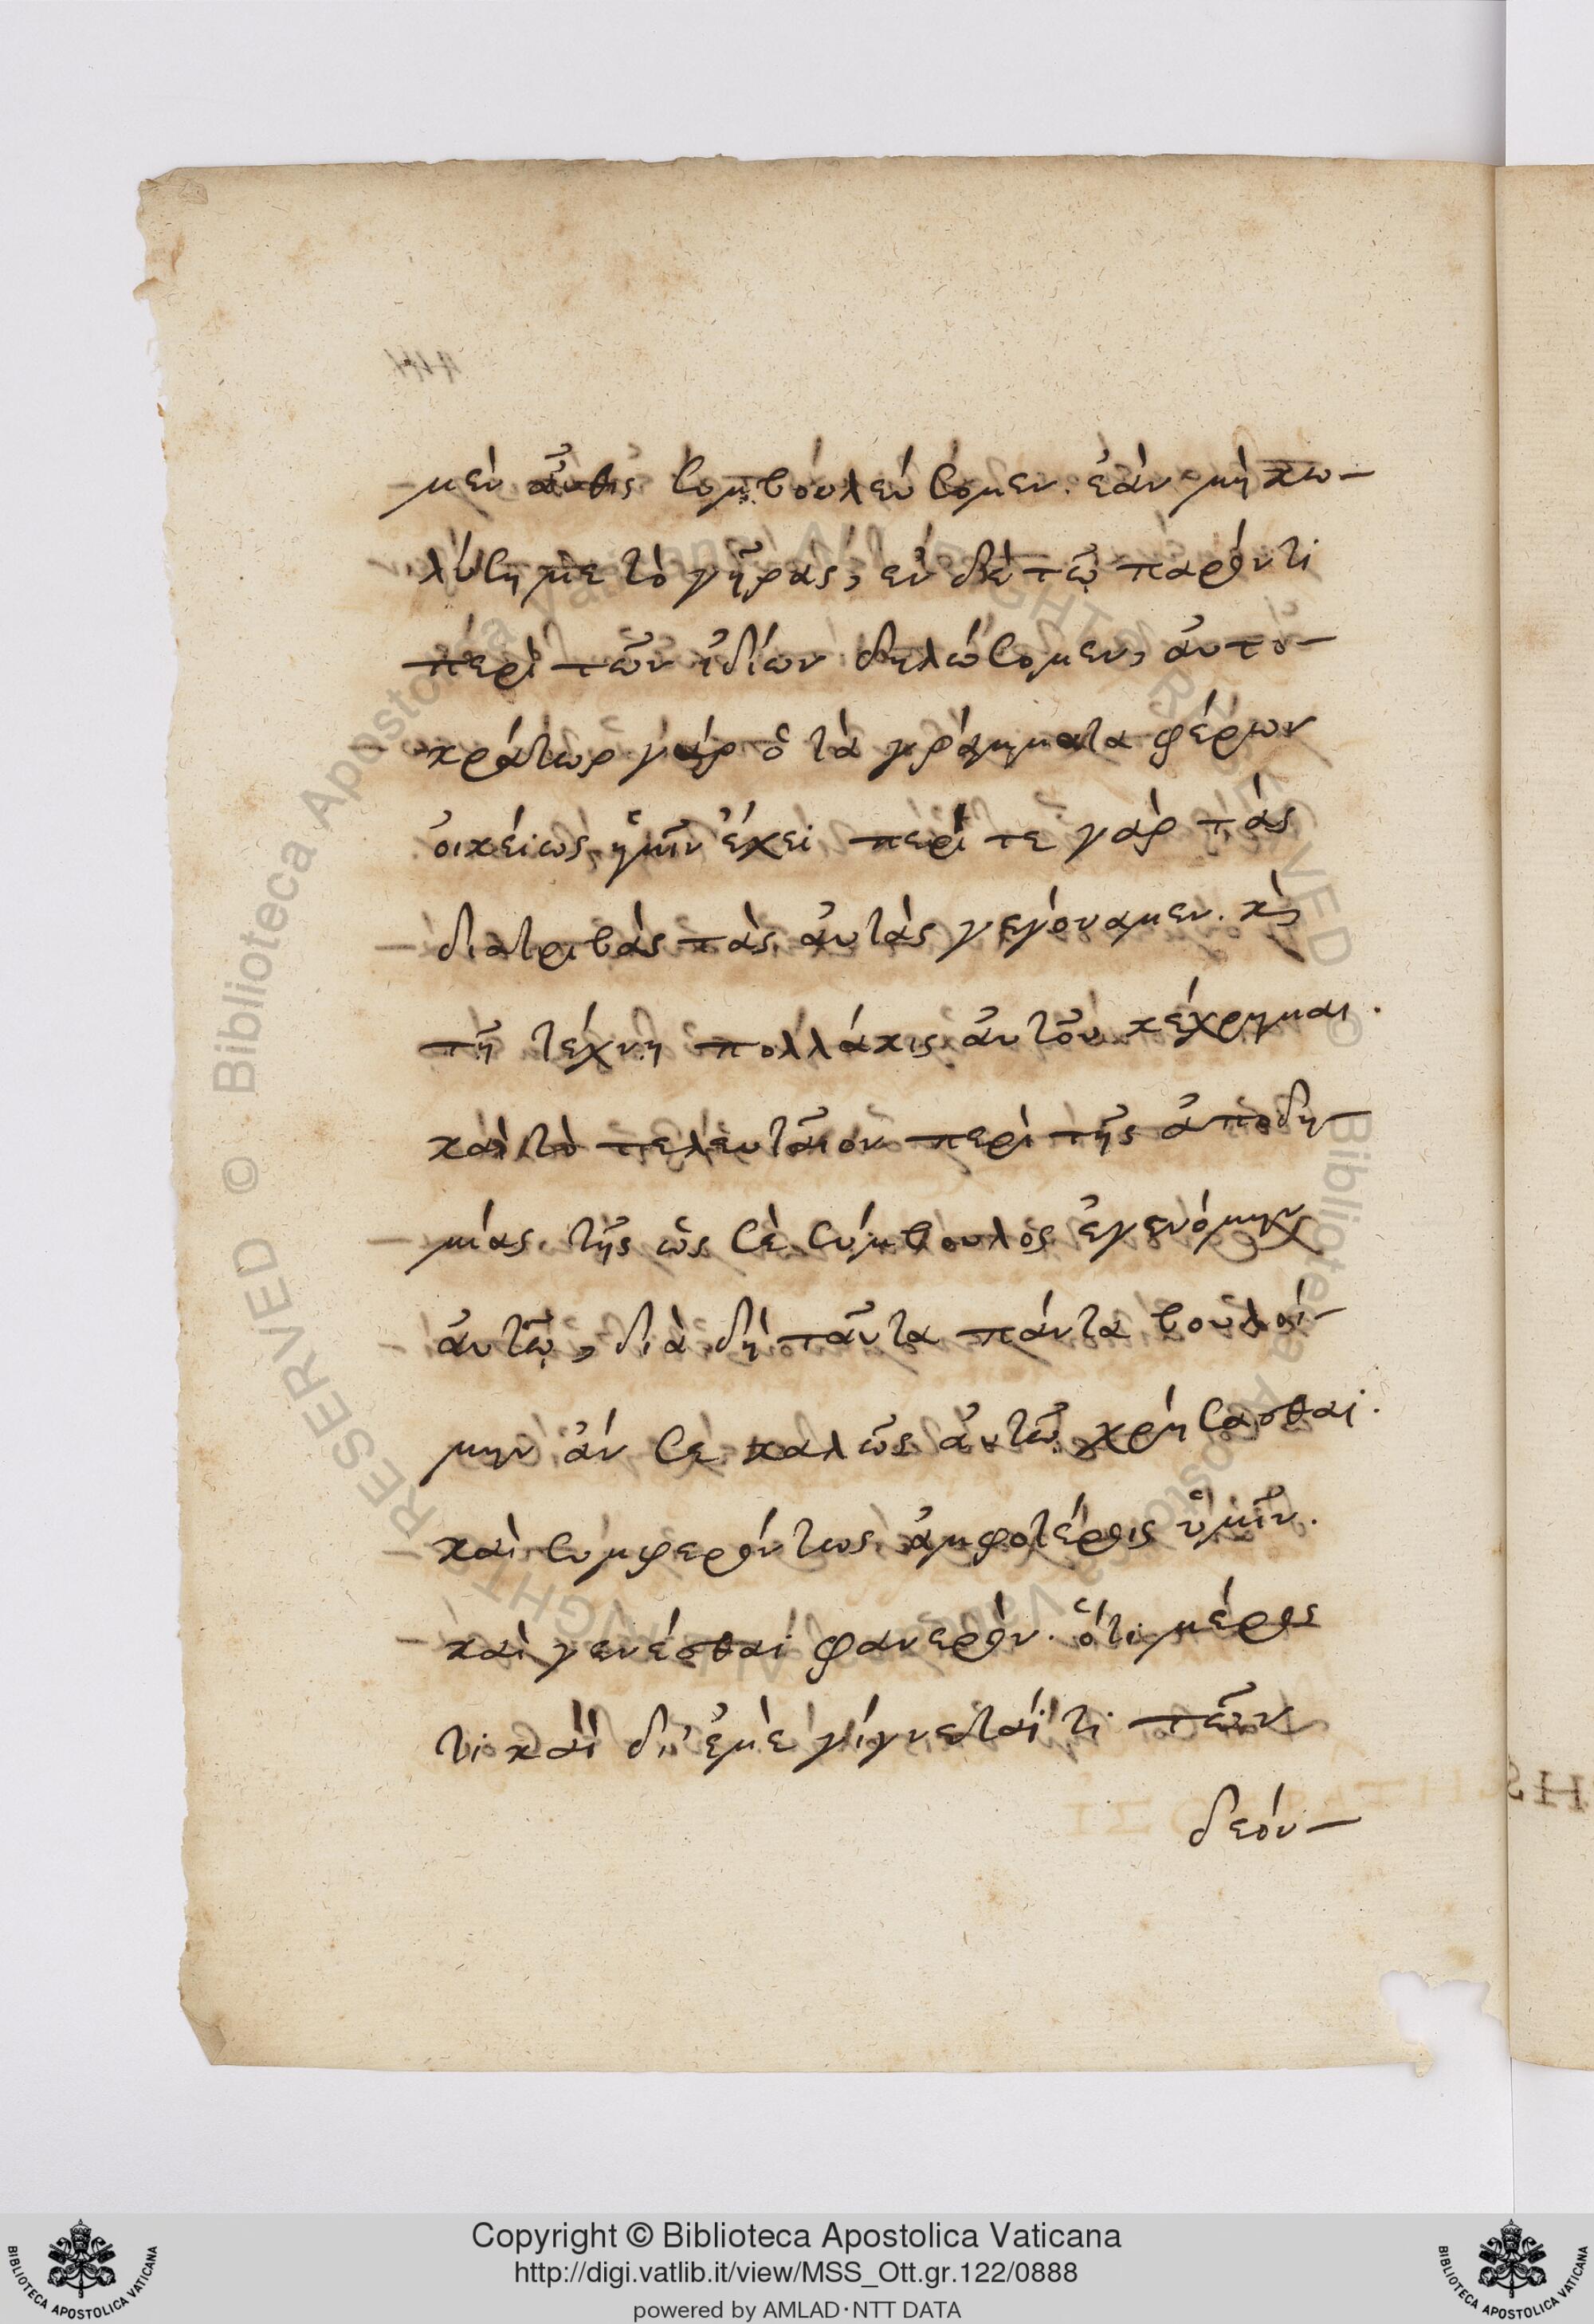 μὲν αὖθις συμβουλεύσομεν. ἐὰν μὴ κω–
λύση με τὸ γῆρας, ἐν δὲ τῷ παρόντι
περὶ τῶν ἰδίων δηλώσομεν, ἀυτο–
κράτωρ γὰρ ὁ τὰ γράμματα φέρων
ὀικείως ἡμῖν ἔχει περί τε γὰρ τὰς
διατριβὰς τὰς ἀυτὰς γεγόναμεν. κὶ
τῆ τέχνη πολλάκις ἀυτοῦ κέχρημαι.
καὶ τὸ τελευταῖον περὶ τῆς ἀποδη–
μίας τῆς ὡς σὲ σύμβουλος ἐγενόμην
ἀυτῷ, διὰ δὴ ταῦτα πάντα βουλοί–
μην ἄν σε καλῶς ἀυτῷ χρήσασθαι.
καὶ συμφερόντως ἀμφοτέροις ὑμῖν.
καὶ γενέσθαι φανερὸν. ὅτι μέρος
τι καὶ δι' ἐμὲ γίγνεταί τι τῶν
δεόν–
Copyright © Biblioteca Apostolica Vaticana
http://digi.vatlib.it/view/MSS_Ott.gr.122/0888
powered by AMLAD·NTT DATA
BIBLIOTECA APOSTOLICA VATICANA
BIBLIOTECA APOSTOLICA VATICANA